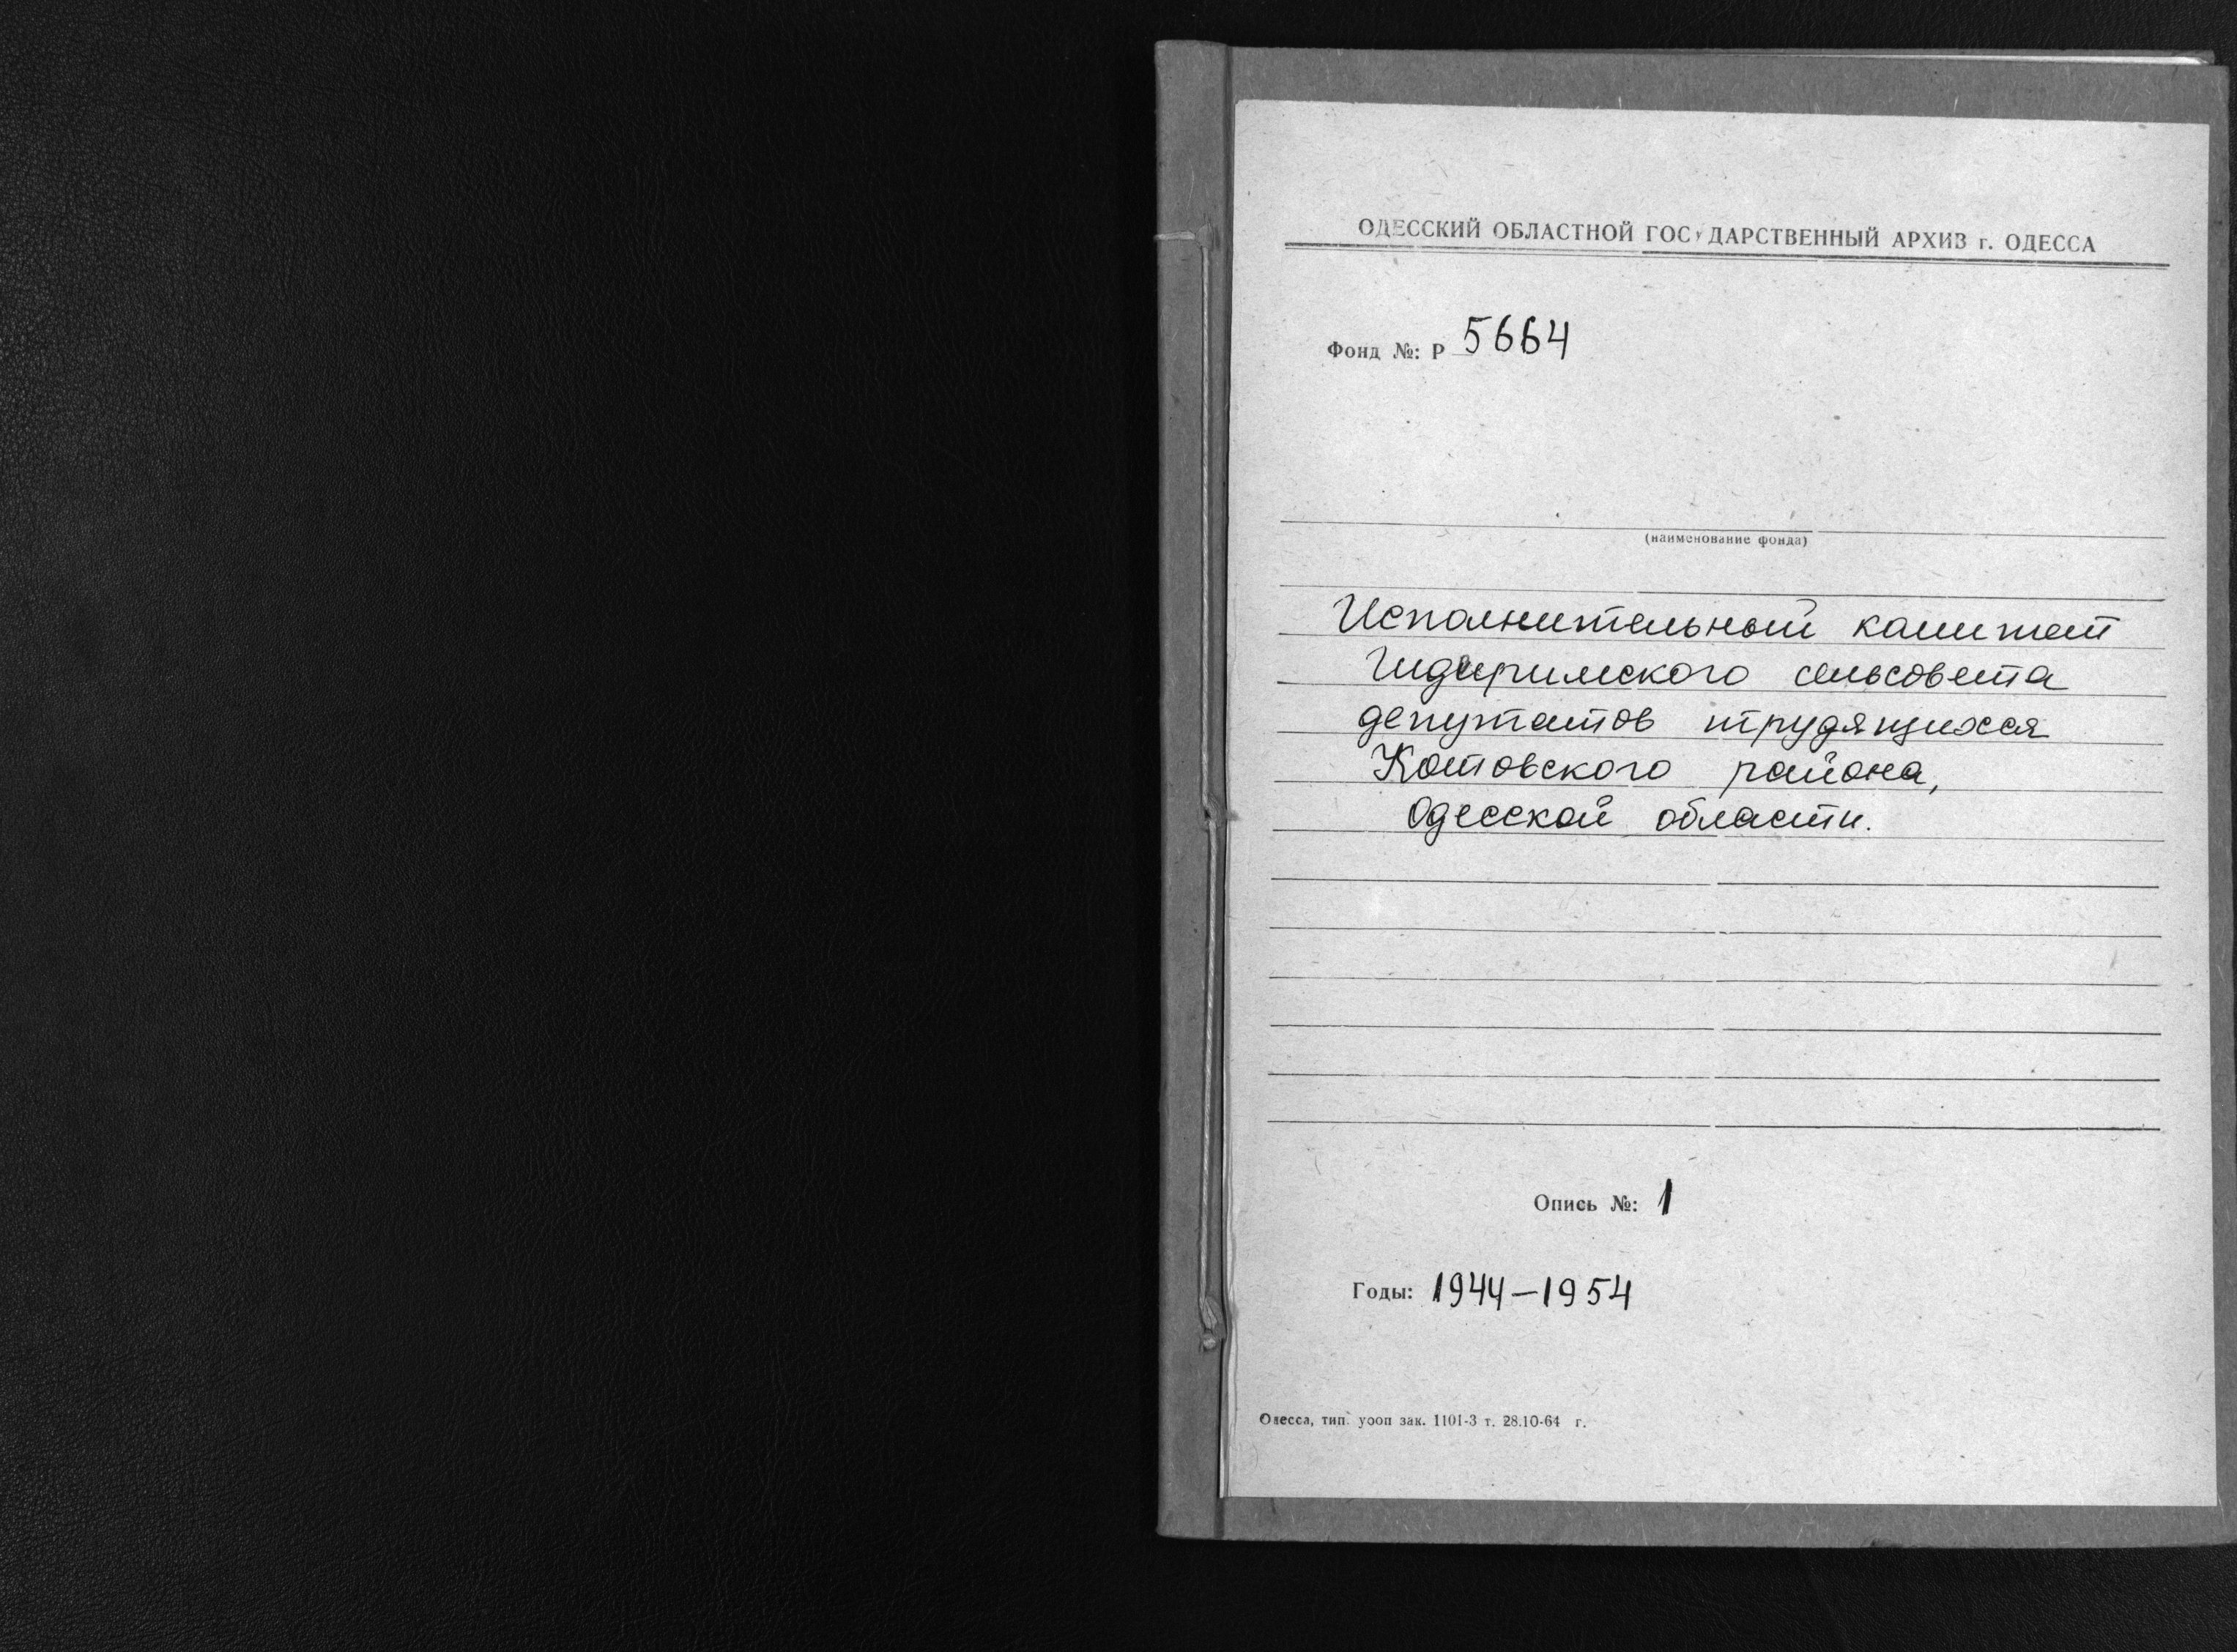 ОДЕССКИЙ ОБЛАСТНОЙ ГОСУДАРСТВЕННЫЙ АРХИВ г. ОДЕССА
Фонд №: Р 5664
(наименование фонда)
Исполнительный комитет
Гидиримского сельсовета
депутатов трудящихся
Котовского района,
Одесской области.
Опись №: 1
Годы: 1944-1954
Одесса, тип. уооп зак. 1101-3 т. 28.10-64 г.